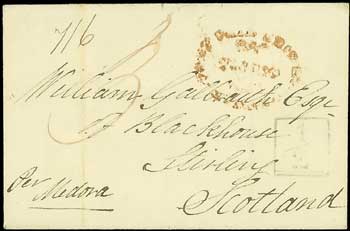 7/6
William Galbraith Esqr
of Blackhouse
Stirling
Scotland
Per
Medora